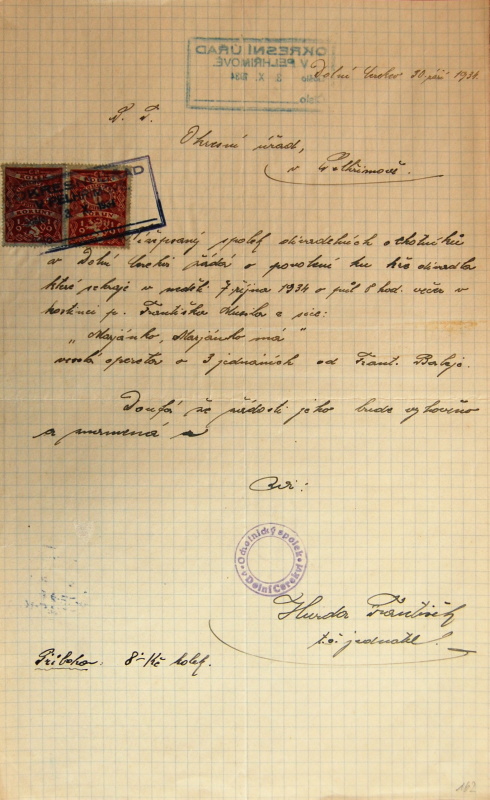 OKRESNÍ ÚŘAD
V PELHŘIMOVĚ
3. X. 1934
Dolní Cerekev 30 září 1934.
P. T.
Okresní úřad,
v Pelhřimově.
spolek divadelních ochotníků
v Dolní Cerekvi žádá o povolení ku hře divadla
které sehraje v neděli 7 října 1934 o půl 8 hod. večer v
hostinci p. Františka a sice:
„Marjánko, Marjánko má"
veselá opereta o 3 jednáních od Frant. Balej.
Doufá že žádosti jeho bude vyhověno
a znamená se
Ochotnický spolek
v Dolní Cerekvi
Hurda František
t.č. jednatel.
Příloha: 8 Kč kolek.
162